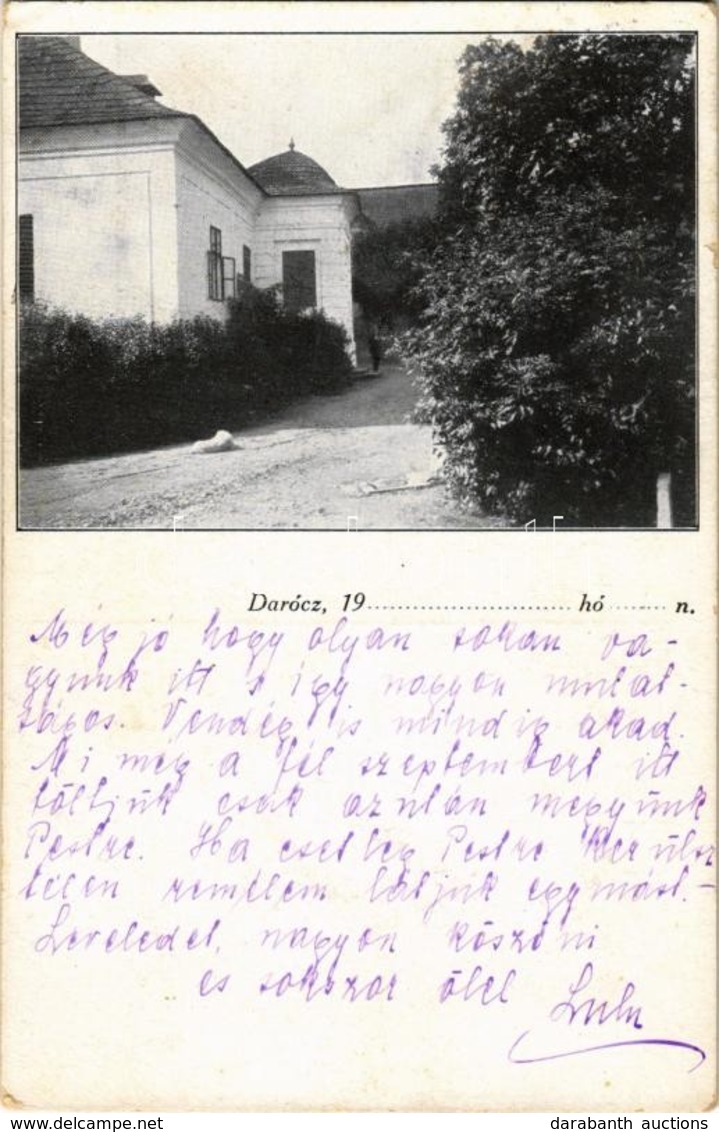 Darócz, 19........................... hó ........ n.
Még jó hogy olyan sokan va-
gyunk itt s így nagyon mulat-
ságos. Vendég is mindig akad.
Mi még a fél szeptembert itt
töltjük csak azután megyünk
Pestre. Ha esetleg Pestre kerülsz
télen remélem látjuk egymást. -
Leveledet, nagyon köszöni
és sokszor ölel Lulu
delcampe.net
darabanth auctions